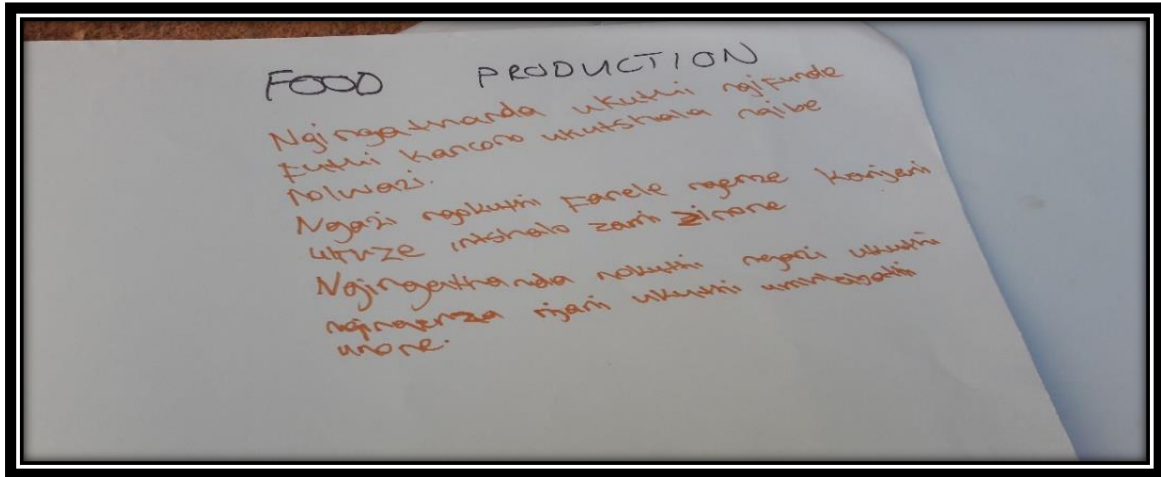 FOOD PRODUCTION
Ngingathanda ukuthi ngifunde
futhi kancono ukutshala ngibe
nolwazi.
Ngazi ngokuthi Fanele ngenze kanjani
ukuze intshalo zami zinone
Ngingathanda nokuthi ngazi ukuthi
ngingenza njani ukuthi umhlabathi
unone.